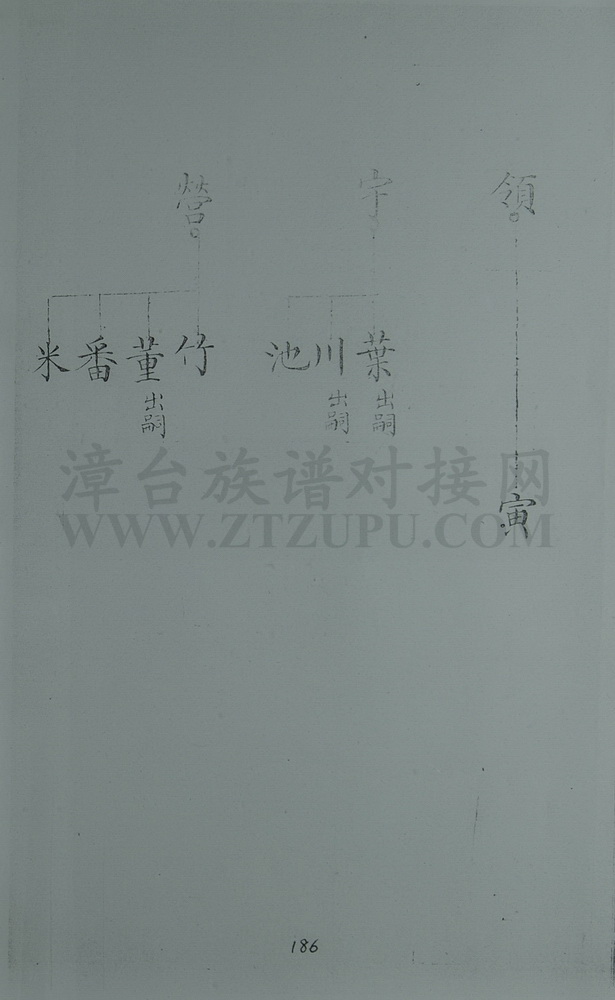 領
寅
宇
葉 出嗣
川 出嗣
池
營
竹
董 出嗣
番
米
漳台族谱对接网
WWW.ZTZUPU.COM
186